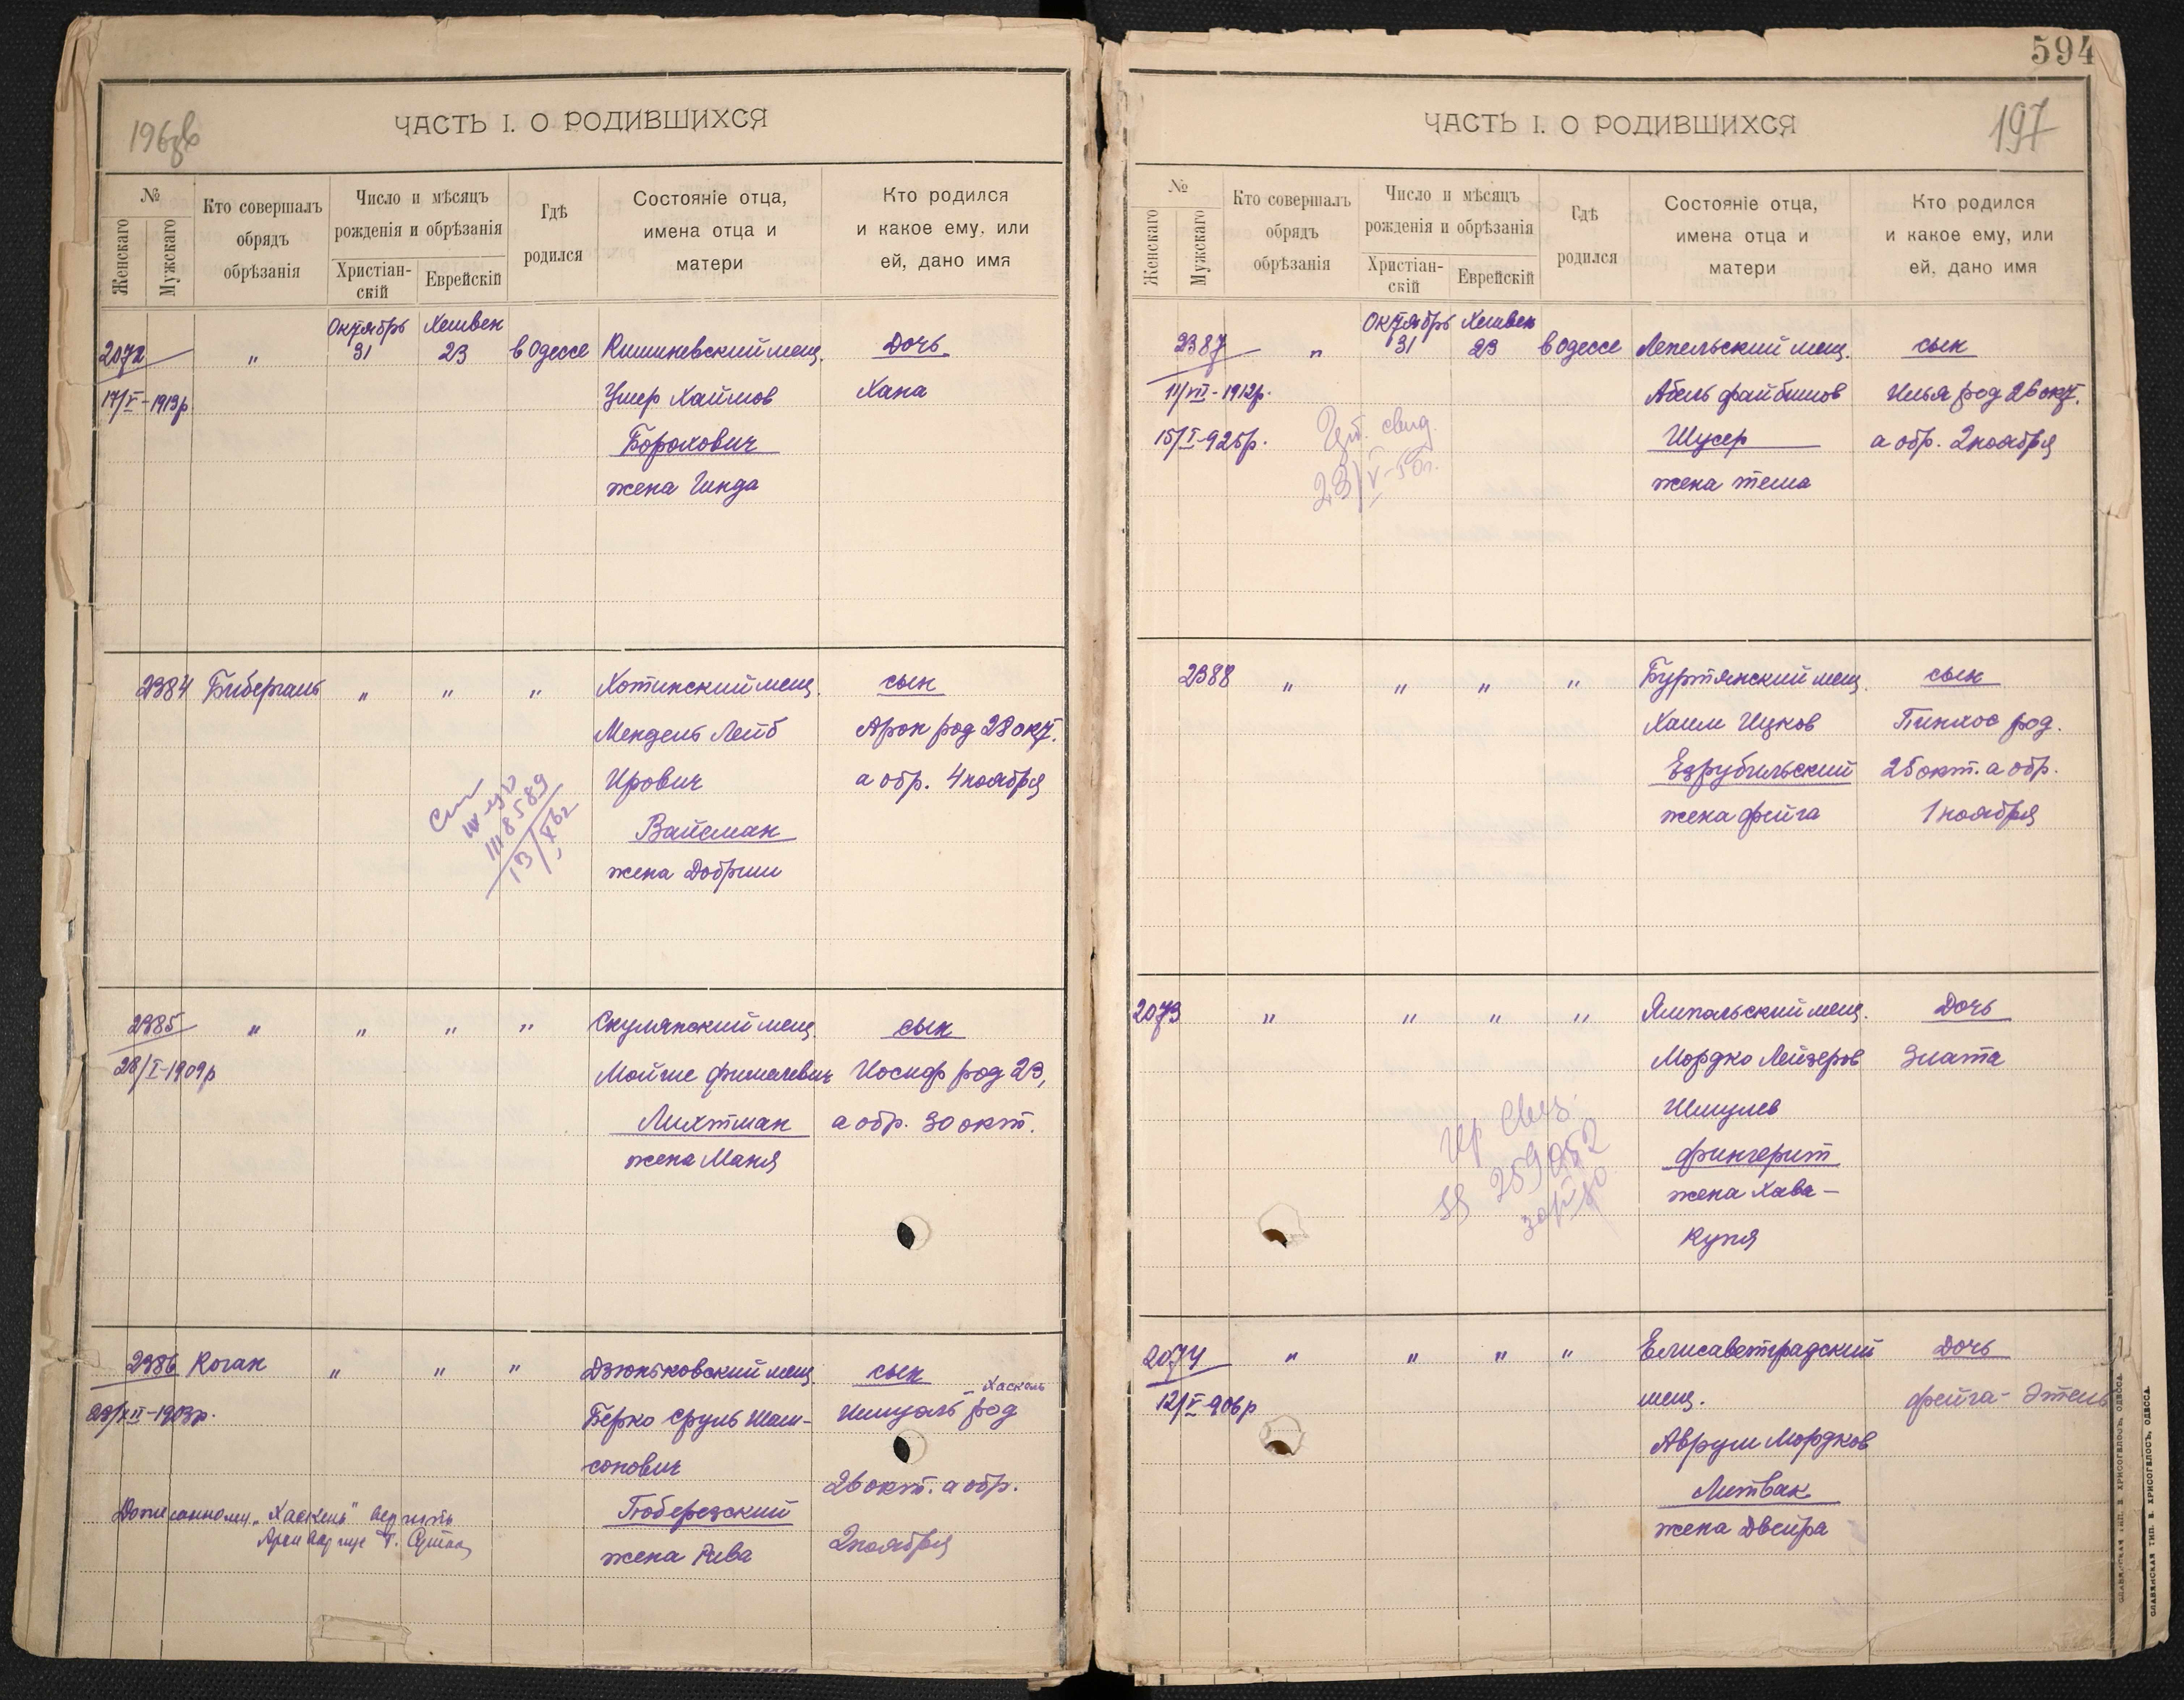 196 об
ЧАСТЬ I. О РОДИВШИХСЯ
№
Женскаго
Мужскаго
Кто совершалъ
обрядъ
обрѣзанія
Число и мѣсяцъ
рожденія и обрѣзанія
Христіан-
скій
Еврейскій
Гдѣ
родился
Состояніе отца,
имена отца и
матери
Кто родился
и какое ему, или
ей, дано имя
2072
17/V-1913р
"
Октябрь
31
Хешвен
23
в Одессе
Кишиневский мещ.
Ушер Хаимов
Борохович
жена Гинда
Дочь
Хана
2384
Биберталь
"
"
"
Хотинский мещ.
Мендель Лейб
Ирович
Вайсман
жена Добриш
сын
Арон род 28 окт.
а обр. 4 ноября
118589
2385
28/I-1909р
"
"
"
"
Скулянский мещ.
Мойше Фишелевич
Лихтман
жена Маня
сын
Иосиф род 23,
а обр. 30 окт.
2386
Коган
"
"
"
Дзюньковский мещ.
Берко Сруль Шам-
сонович
Гоберезский
жена Рива
сын
- Хаскель
Шмуэль род
26 окт. а обр.
2 ноября
"Хаскель"
594
197
ЧАСТЬ I. О РОДИВШИХСЯ
№
Женскаго
Мужскаго
Кто совершалъ
обрядъ
обрѣзанія
Число и мѣсяцъ
рожденія и обрѣзанія
Христіан-
скій
Еврейскій
Гдѣ
родился
Состояніе отца,
имена отца и
матери
Кто родился
и какое ему, или
ей, дано имя
2387
11/VII-1912р.
15/I-925р.
"
Октябрь
31
Хешвен
23
в Одессе
Лепельский мещ.
Абель Файбишов
Шусер
жена Теша
сын
Илья род 26 окт.
а обр. 2 ноября
свид.
2388
"
"
"
"
Буртянский мещ.
Хаим Ицков
Езрубильский
жена Фейга
сын
Пинхос род.
25 окт. а обр.
1 ноября
2073
"
"
"
"
Ямпольский мещ.
Мордко Лейзеров
Шмулев
Фингерит
жена Хава-
Купя
Дочь
Злата
259052
2074
12/V-906р
"
"
"
"
Елисаветградский
мещ.
Аврум Мордков
Литвак
жена Двейра
Дочь
Фейга-Этель
СЛАВЯНСКАЯ ТИП. В. ХРИСОГЕЛОСЪ, ОДЕССА.
СЛАВЯНСКАЯ ТИП. В. ХРИСОГЕЛОСЪ, ОДЕССА.